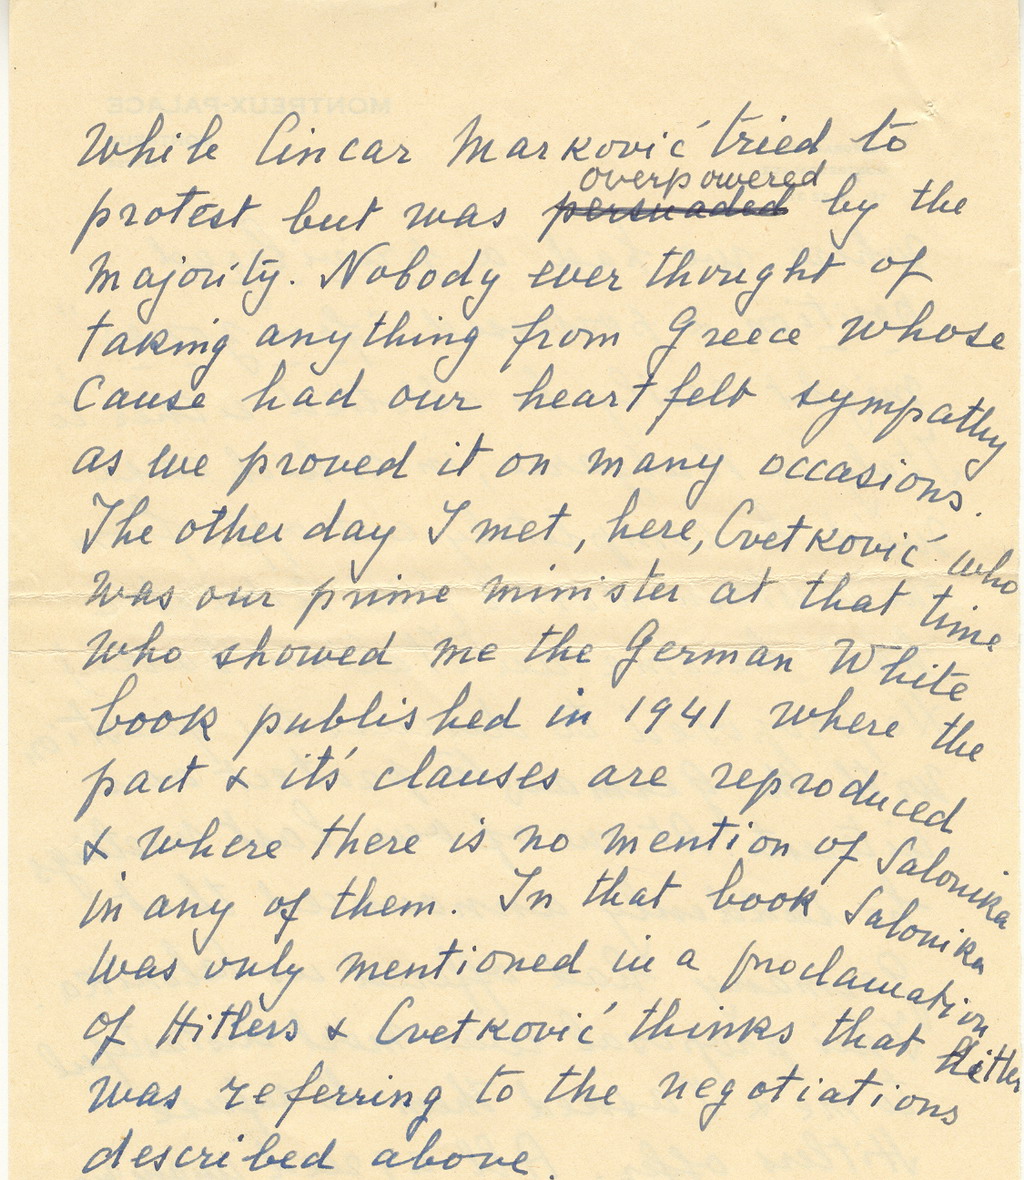 MONTREUX-PALACE
While Cincar Marković tried to
overpowered
protest but was persuaded by the
majority. Nobody ever thought of
taking anything from Greece whose
cause had our heart felt sympathy
as we proved it on many occasions.
The other day I met, here, Cvetković who
was our prime minister at that time
who showed me the German White
book published in 1941 where the
pact & it's clauses are reproduced
& where there is no mention of Salonika
in any of them. In that book Salonika
was only mentioned in a proclamation
of Hitlers & Cvetković thinks that Hitler
was referring to the negotiations
described above.